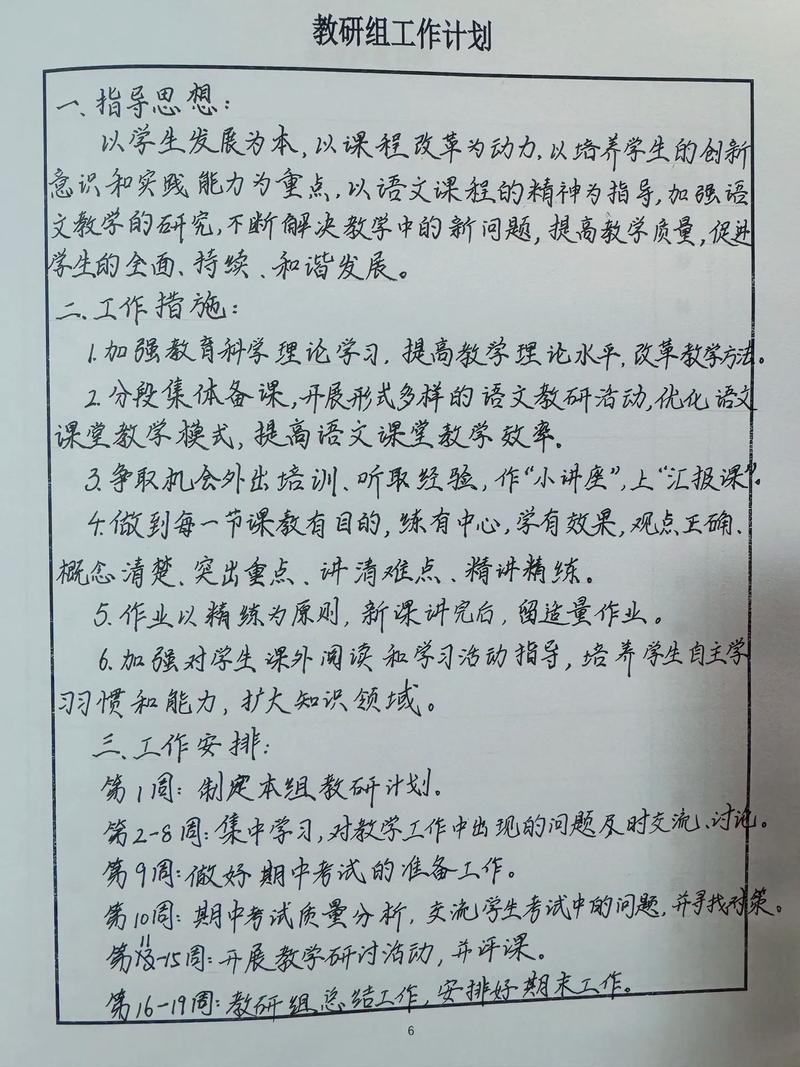 教研组工作计划
一、指导思想：
以学生发展为本，以课程改革为动力，以培养学生的创新
意识和实践能力为重点，以语文课程的精神为指导，加强语
文教学的研究，不断解决教学中的新问题，提高教学质量，促进
学生的全面、持续、和谐发展。
二、工作措施：
1.加强教育科学理论学习，提高教学理论水平，改革教学方法。
2.分段集体备课，开展形式多样的语文教研活动，优化语文
课堂教学模式，提高语文课堂教学效率。
3.争取机会外出培训、听取经验，作“小讲座”，上“汇报课”。
4.做到每一节课教有目的，练有中心，学有效果，观点正确、
概念清楚、突出重点、讲清难点、精讲精练。
5.作业以精练为原则，新课讲完后，留适量作业。
6.加强对学生课外阅读和学习活动指导，培养学生自主学
习习惯和能力，扩大知识领域。
三、工作安排：
第1周：制定本组教研计划。
第2-8周：集中学习，对教学工作中出现的问题及时交流、讨论。
第9周：做好期中考试的准备工作。
第10周：期中考试质量分析，交流学生考试中的问题，并寻找对策。
第11-15周：开展教学研讨活动，并评课。
第16-19周：教研组总结工作，安排好期末工作。
6